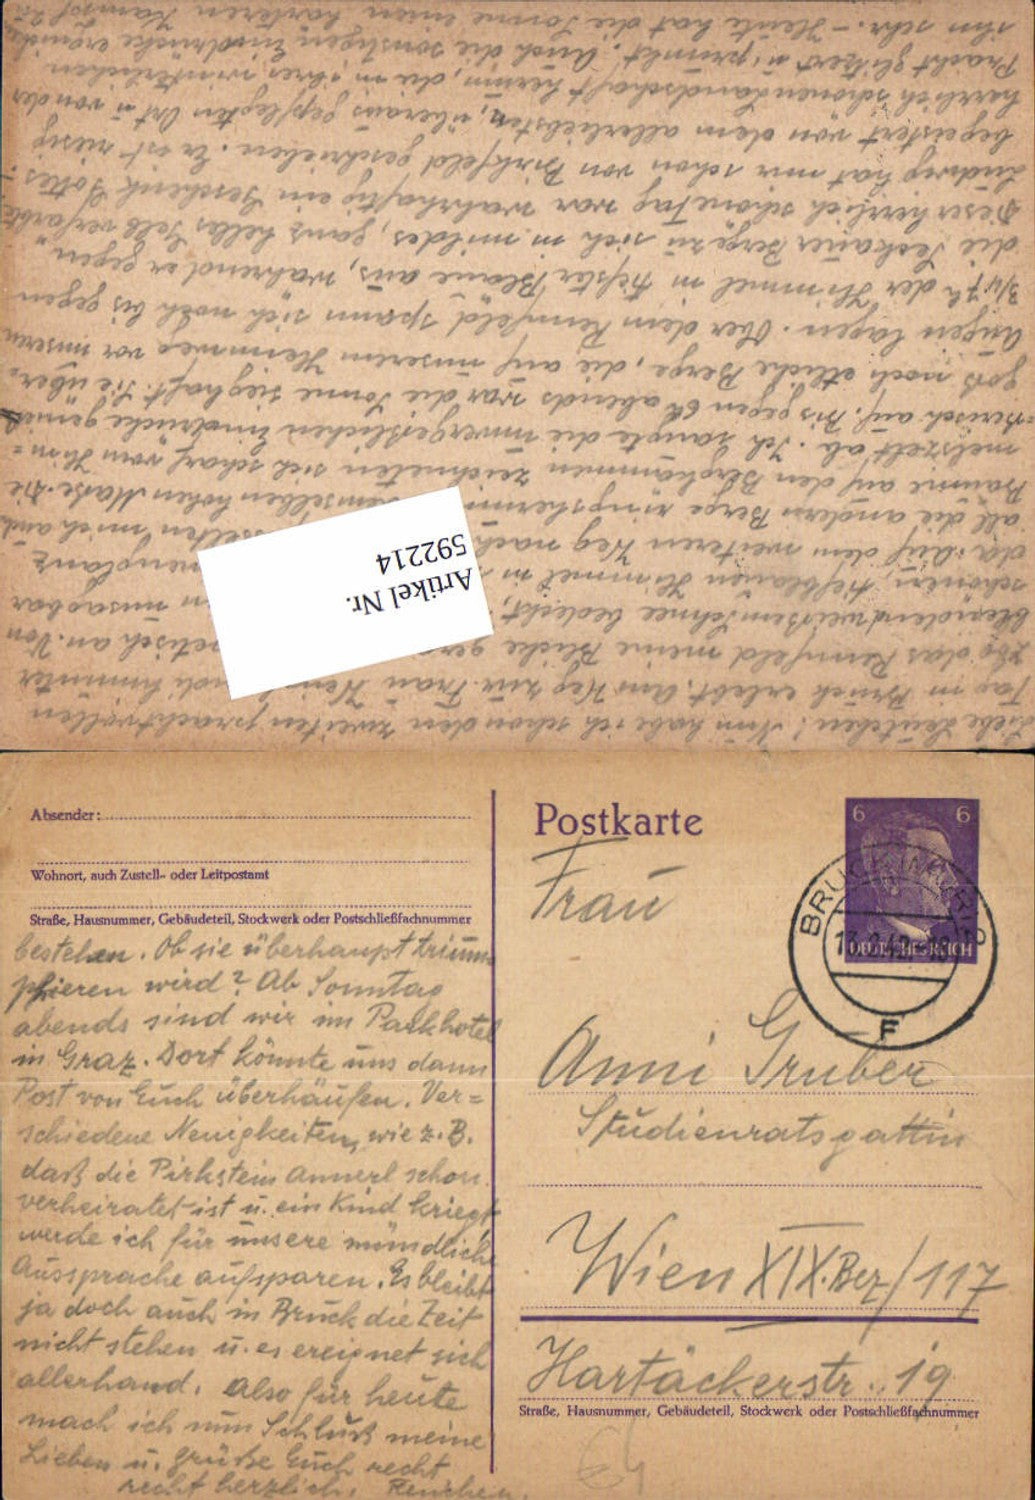 Liebe Leutchen! Nun habe ich schon den zweiten prachtvollen
Tag in Bruck erlebt. Am Weg zur Frau hinunter
zog das Rennfeld meine Blicke magnetisch an. Von
blendendweißem Schnee bedeckt, unsagbar
schönem, tiefblauen Himmel in
da. Auf dem weiteren Weg nach mich auch
all die andern Berge ringsherum in demselben hohen Maße. Die
Bäume auf den Bergkämmen zeichneten sich scharf vom Him=
melszelt ab. Ich saugte die unvergeßlichen Eindrücke
auf. Bis gegen 6h abends war die Sonne sieghaft. Sie über=
goß noch etliche Berge, die auf unserem Heimweg vor unseren
Augen lagen. Über dem Rennfeld spann sich noch bis gegen
3/4 7h der Himmel in tiefster Bläue aus, während er gegen
die Seckauer Berge zu sich in mildes, ganz helles Gelb verfärbte.
Dieser herrlich schöne Tag war wahrhaftig ein Geschenk Gottes.
Ludwig hat mir schon von Birkfeld geschrieben. Er ist riesig
begeistert von dem allerliebsten, überaus gepflegten Ort u. von der
herrlich schönen Landschaft herum, die in ihrer winterlichen
Pracht glitzert u. prunkt. Auch die sonstigen Eindrücke
ihn sehr. – Heute hat die Sonne einen härteren Kampf zu
Artikel Nr.
592214
Absender:
Wohnort, auch Zustell- oder Leitpostamt
Straße, Hausnummer, Gebäudeteil, Stockwerk oder Postschließfachnummer
bestehen. Ob sie überhaupt trium=
phieren wird? Ab Sonntag
abends sind wir im Parkhotel
in Graz. Dort könnte uns dann
Post von Euch überhäufen. Ver=
schiedene Neuigkeiten, wie z. B.
daß die Pirkstein Annerl schon
verheiratet ist u. ein Kind kriegt
werde ich für unsere mündliche
Aussprache aufsparen. Es bleibt
ja doch auch in Bruck die Zeit
nicht stehen u. es ereignet sich
allerhand. Also für heute
mach ich nun Schluß meine
Lieben u. grüße Euch recht
recht herzlich.
Postkarte
6 6
DEUTSCHES REICH
BRUCK
F
Frau
Anni Gruber
Studienratsgattin
Wien XIX. Bez/117
Hartäckerstr. 19
Straße, Hausnummer, Gebäudeteil, Stockwerk oder Postschließfachnummer